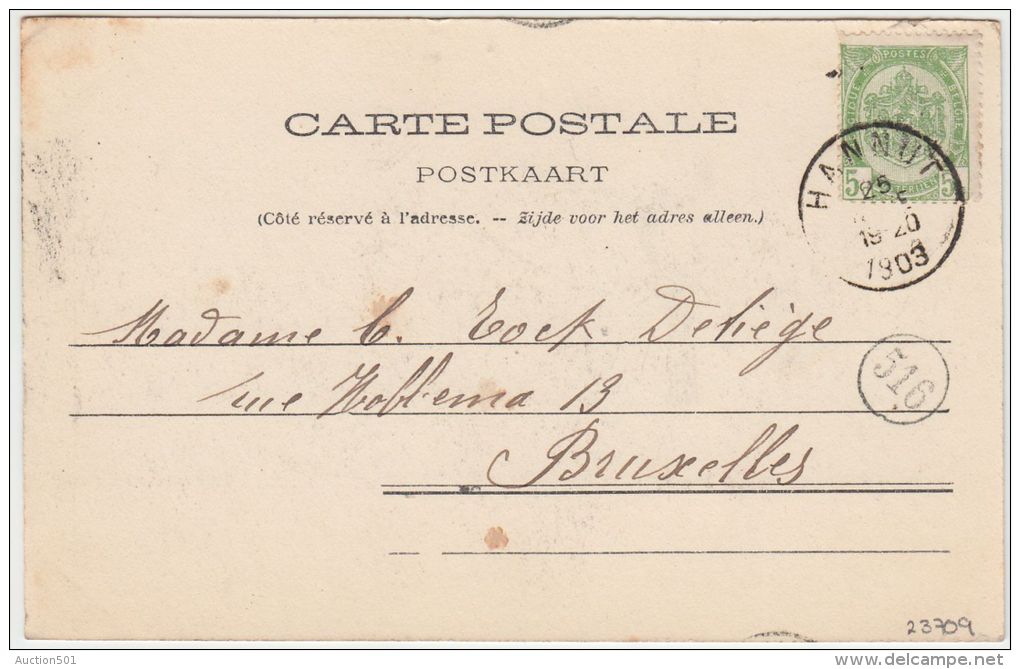 POSTES
BELGIQUE BELGIË
5 5
CARTE POSTALE
POSTKAART
(Côté réservé à l'adresse. -- Zijde voor het adres alleen.)
HANNUT
25
19-20
1903
Madame C. Eock Detiège
rue Hobbema 13
516
Bruxelles
23709
Auction501
delcampe.net